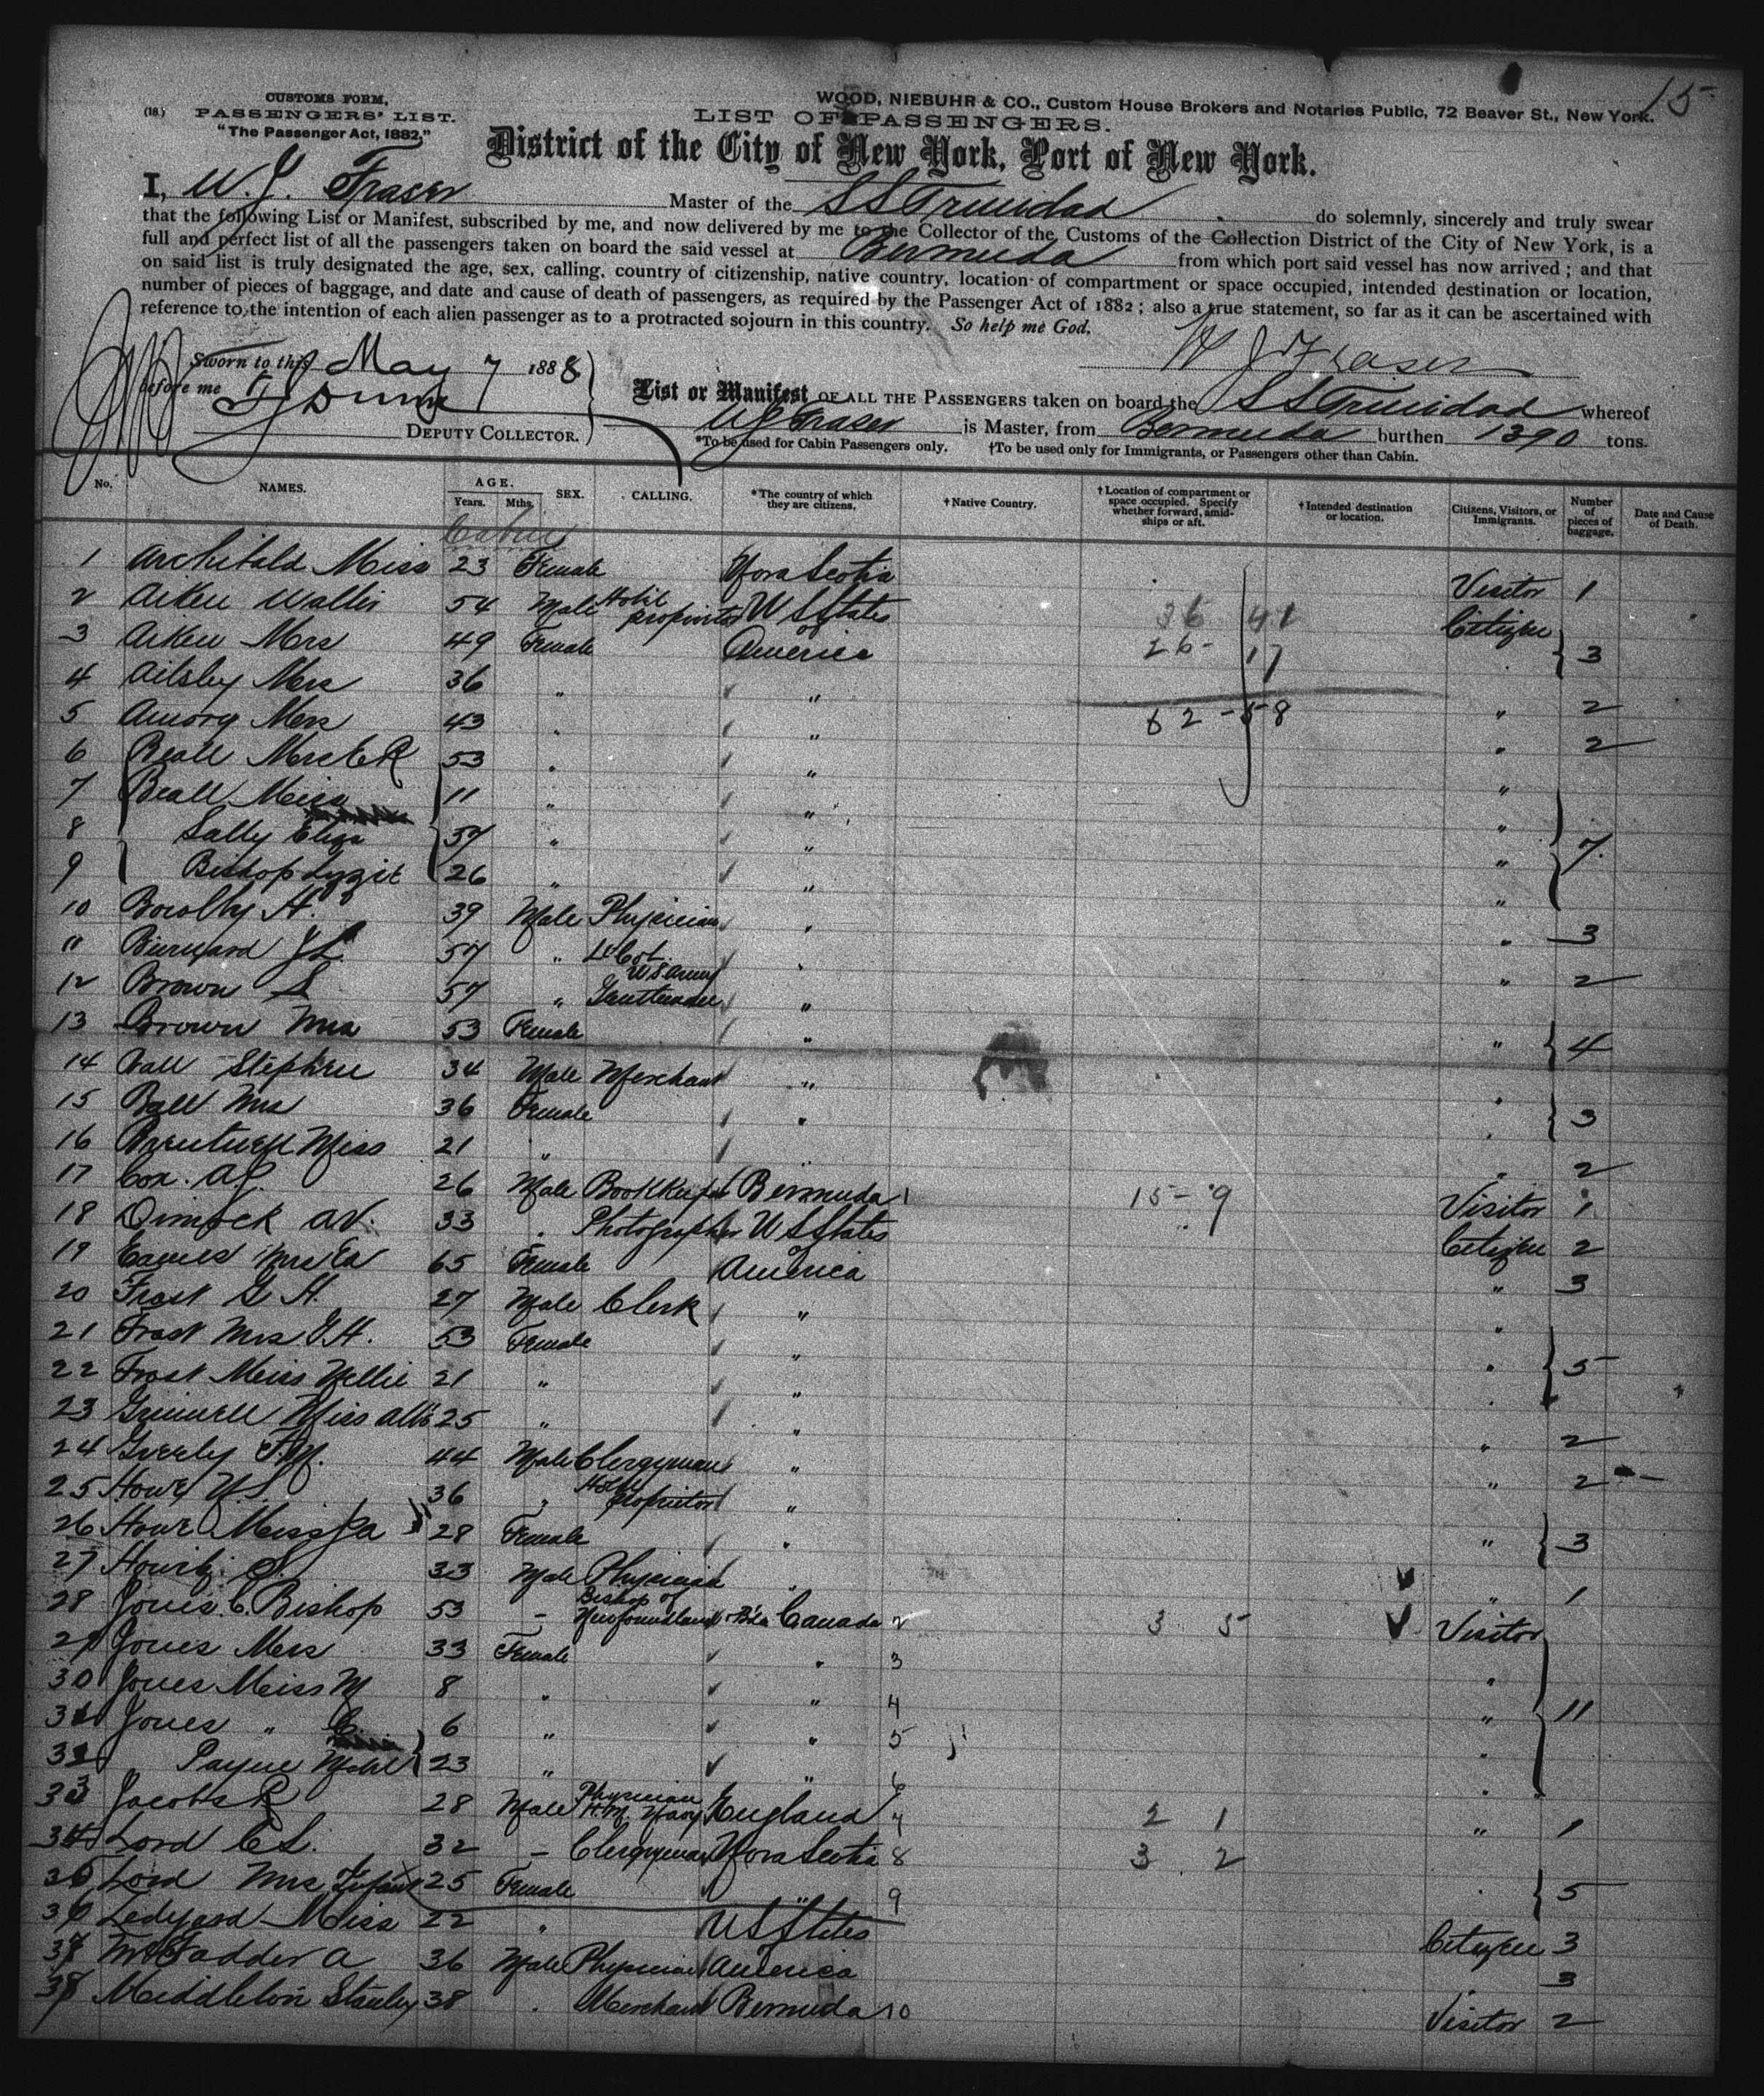 15
CUSTOMS FORM,
(18) PASSENGERS' LIST.
"The Passenger Act, 1882."
WOOD, NIEBUHR & CO., Custom House Brokers and Notaries Public, 72 Beaver St., New York.
LIST OF PASSENGERS.
District of the City of New York, Port of New York.
I, W. J. Fraser Master of the SS Trinidad do solemnly, sincerely and truly swear
that the following List or Manifest, subscribed by me, and now delivered by me to the Collector of the Customs of the Collection District of the City of New York, is a
full and perfect list of all the passengers taken on board the said vessel at Bermuda from which port said vessel has now arrived; and that
on said list is truly designated the age, sex, calling, country of citizenship, native country, location of compartment or space occupied, intended destination or location,
number of pieces of baggage, and date and cause of death of passengers, as required by the Passenger Act of 1882; also a true statement, so far as it can be ascertained with
reference to the intention of each alien passenger as to a protracted sojourn in this country. So help me God.
W J Fraser
Sworn to this May 7 1888
before me
DEPUTY COLLECTOR.
List or Manifest OF ALL THE PASSENGERS taken on board the SS Trinidad whereof
W J Fraser is Master, from Bermuda burthen 1390 tons.
*To be used for Cabin Passengers only. †To be used only for Immigrants, or Passengers other than Cabin.
No. NAMES. AGE. Years. Mths. SEX. CALLING. *The country of which they are citizens. †Native Country. †Location of compartment or space occupied. Specify whether forward, amidships or aft. †Intended destination or location. Citizens, Visitors, or Immigrants. Number of pieces of baggage. Date and Cause of Death.
Cabin
1 Archibald Miss 23 Female Nova Scotia Visitor 1
2 Aiken Walter 54 Male Hotel proprietor U S States 36 41 Citizen
3 Aiken Mrs 49 Female of America 26 - 17 " 3
4 Ailsby Mrs 36 " " " 2
5 Amory Mrs 43 " " 62 - 58 " 2
6 Beall Mrs C R 53 " " "
7 Beall Miss 11 " " "
8 Sally Eliza 37 " " " 7
9 Bishop Lyzie 26 " " "
10 H. 39 Male Physician " " 3
11 J L 57 " Lt Col. U S Army " " 2
12 Brown S 57 " Gentleman "
13 Brown Mrs 53 Female " " 4
14 Ball Stephen 34 Male Merchant " "
15 Ball Mrs 36 Female " " 3
16 Miss 21 " " " 2
17 Cox. A J. 26 Male Bookkeeper Bermuda 1 15 - 9 Visitor 1
18 Dimock A V. 33 " Photographer U S States Citizen 2
19 Eames Mrs 65 Female of America " 3
20 Frost G H. 27 Male Clerk " "
21 Frost Mrs G. H. 53 Female " " 5
22 Frost Miss Nellie 21 " " "
23 Grinnell Miss 25 " " " 2
24 F. M. 44 Male Clergyman " " 2
25 Howe 36 " Hotel proprietor "
26 Howe Miss 28 Female " " 3
27 S. 33 Male Physician " " 1
28 Jones C. Bishop 53 - Bishop of Newfoundland Canada 2 3 5 Visitor
29 Jones Mrs 33 Female " 3 "
30 Jones Miss M 8 " " 4 " 11
31 Jones " C. 6 " " 5 "
32 Payne 23 " " 6 "
33 Jacobs R 28 Male Physician H. M. Navy England 7 2 1 " 1
34 Lord C S. 32 - Clergyman Nova Scotia 8 3 2
35 Lord Mrs Infant 25 Female " 9 " 5
36 Ledyard Miss 22 " U S States Citizen 3
37 McFadden A 36 Male Physician of America 3
38 Middleton Stanley 38 " Merchant Bermuda 10 Visitor 2